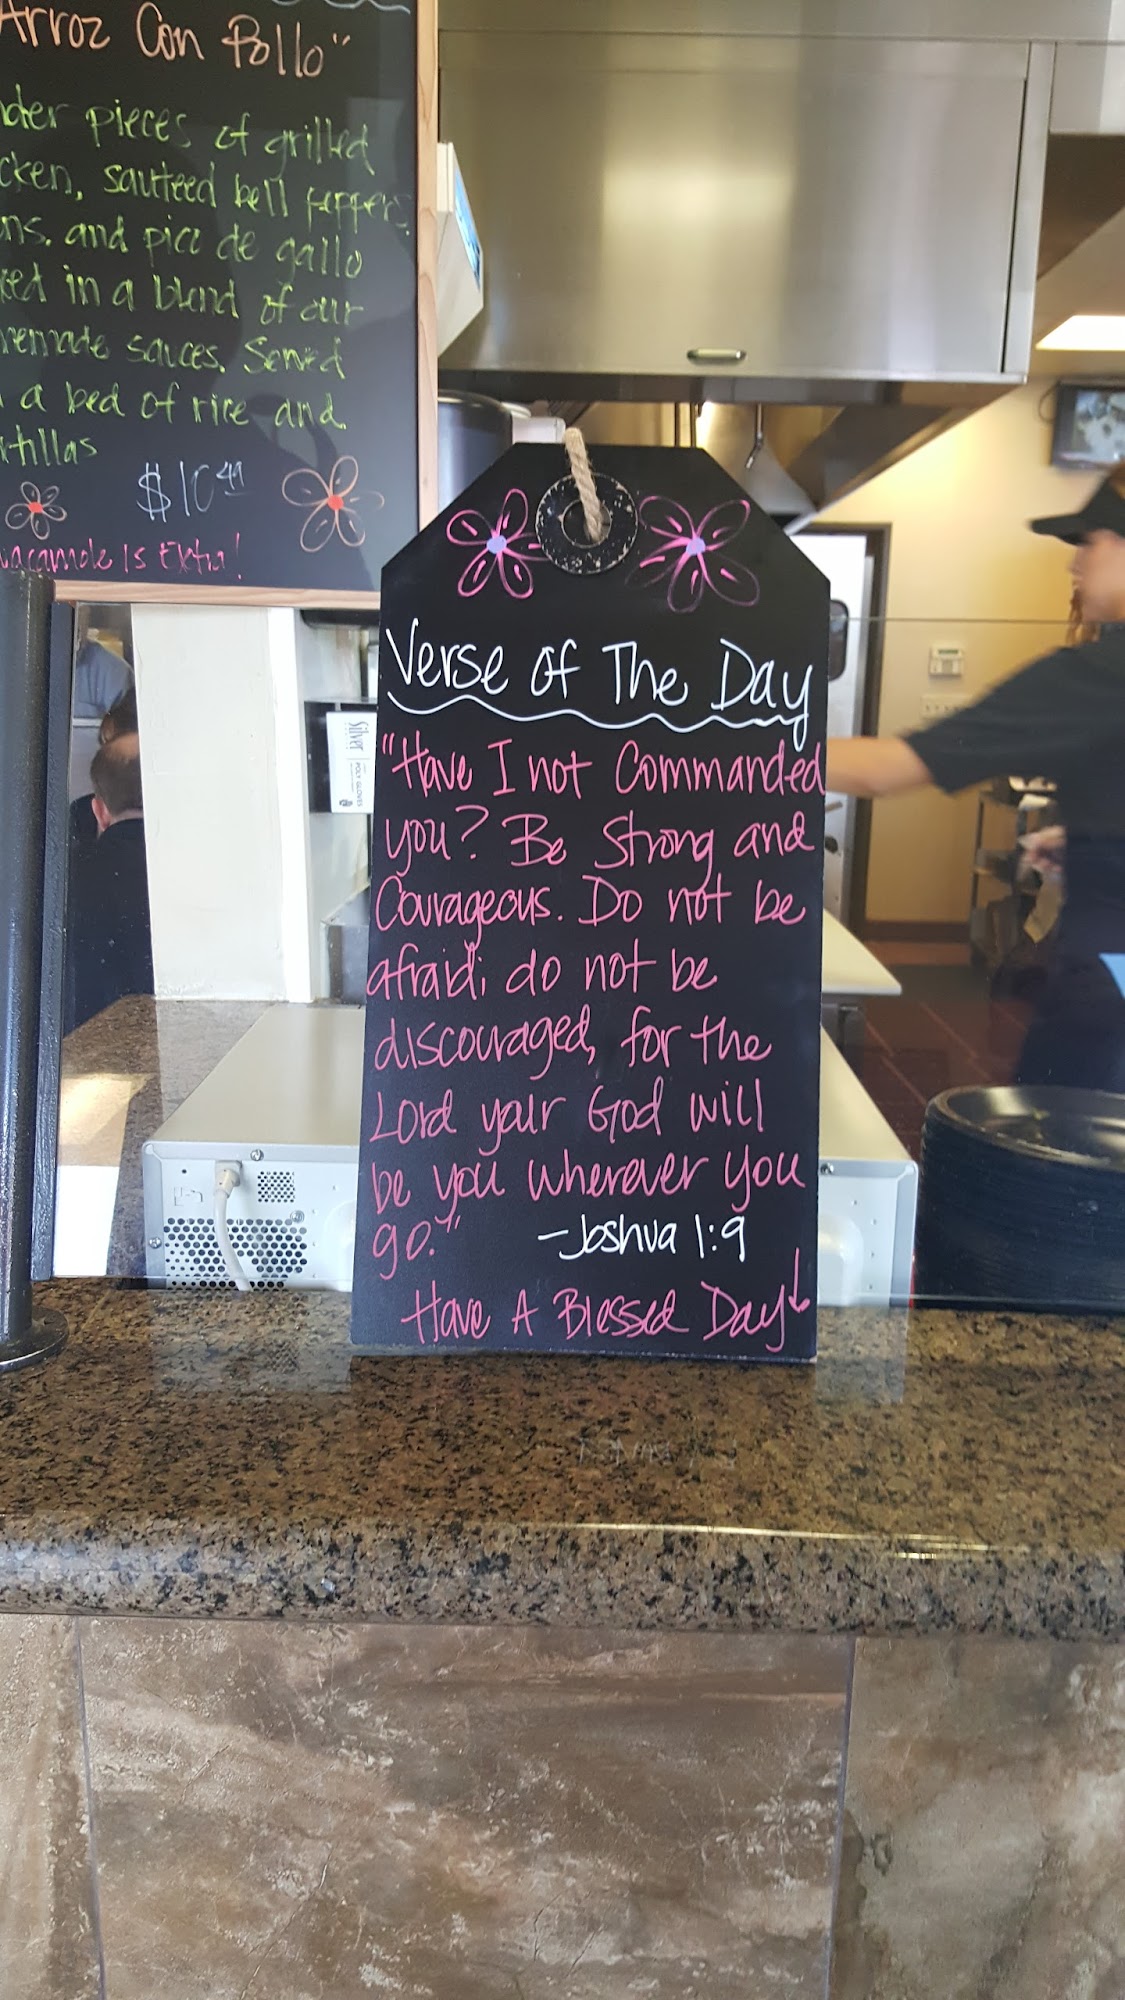 Arroz Con Pollo"
pieces of grilled
sauteed bell peppers,
and pico de gallo
in a blend of our
sauces. Served
a bed of rice and
$10.49
Is Extra!
Verse of The Day
"Have I not Commanded
you? Be Strong and
Courageous. Do not be
afraid; do not be
discouraged, for the
Lord your God will
be you wherever you
go."
-Joshua 1:9
Have A Blessed Day
Silver
POLY GLOVES